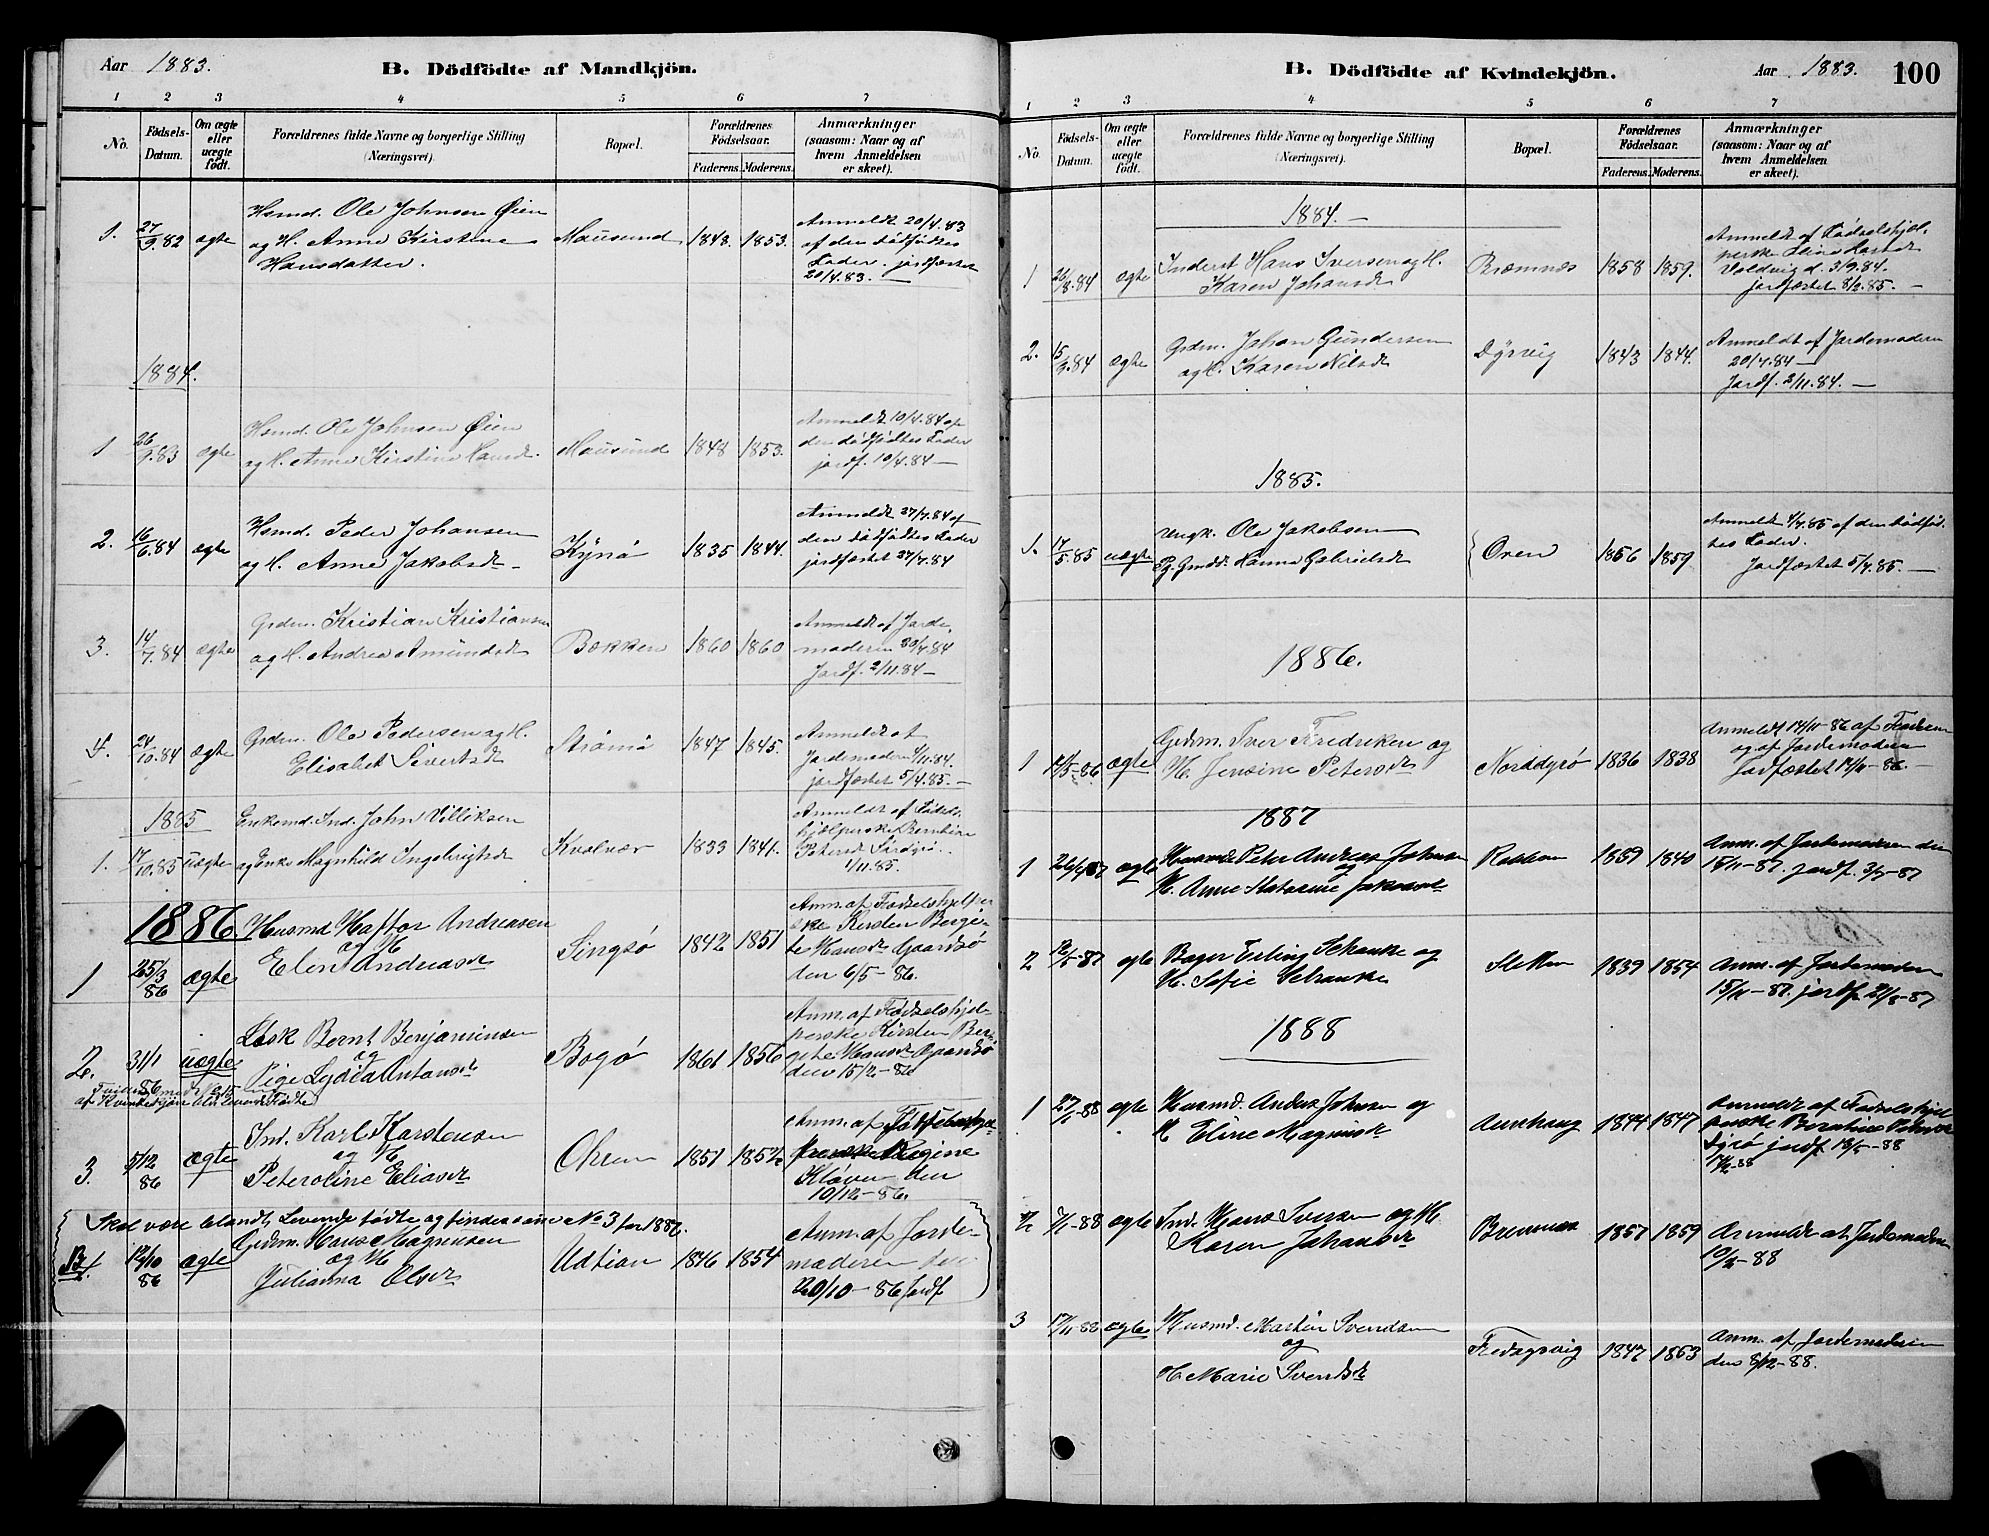 Aar 1883.
B. Dödfödte af Mandkjön.
1 2 3 4 5 6 7
No.
Födsels-
Datum.
Om ægte
eller
uægte
født.
Forældrenes fulde Navne og borgerlige Stilling
(Næringsvei).
Bopæl.
Forældrenes
Födselsaar.
Faderens. Moderens.
Anmærkninger
(saasom: Naar og af
hvem Anmeldelsen
er skeet).
1. 27/9.82 ægte
Hsmd. Ole Johnsen Øien
og H. Anne Kirstine
Hansdatter.
Mausund 1848. 1853.
Anmeldt 20/4.83
af den dødfødtes
Fader. jordfæstet
20/4.83. —
1884.
1 26/9.83 ægte
Hsmd. Ole Johnsen Øien
og H. Anne Kirstine Hansd.
Mausund 1848 1853.
Anmeldt 10/4.84 af
den dødfødtes Fader
jordf. 10/4.84 —
2. 16/6.84 ægte
Hsmd. Peder Johansen
og H. Anne Jakobsd.
Kynø 1835 1844.
Anmeldt 27/7.84 af
den dødfødtes Fader
jordfæstet 27/7.84
3. 14/7.84 ægte
Grdm. Kristian Kristiansen
og H. Andrea Amundsd
Bekken 1860 1860
Anmeldt af Jorde-
moderen 20/7.84
Jordf. 2/11.84 —
4. 24/10.84 ægte
Grdm. Ole Pedersen og H.
Elisabet Sivertsd
Strømø 1847 1845.
Anmeldt af
Jordemoderen 4/11.84.
jordfæstet 5/4.85. —
1885
1. 17/10.85 uægte
Enkemd. Ind. John Villiksen
og Enke Magnhild Ingebrigtsd
Kvalvær 1833 1841.
Anmeldt af Fødsels-
hjælperske Bernhine
Petersd
1/11.85.
1886
1 25/3 86 ægte
Husmd Haftor Andreasen
og H
Elen Andreasd
Singsø 1842 1851
Anm. af Fødselshjelper
ske Kirsten Bergi-
te Hansd Gaardsø
den 6/5-86.
2. 31/1 86 uægte
Losk Bernt Benjaminsen
og
Pige Lydia Antonsd
Bogø 1861 1856
Anm. af Fødselshjel-
perske Kirsten Ber-
gite Hansd Gaardsø
den 15/2-86
af Kvindekjøn blev levende Fødte
3. 5/12 86 ægte
Ind. Karl Karstensen
og H
Peteroline Eliasd
Ohren 1851 1852
Anm. af Fødselshjel-
perske Regine
Kløven den
10/12-86.
Skal være blandt Levende fødte og findes som No 3 for 1886.
4. 12/10 86 ægte
Grdm. Hans Magnusen
og H
Julianna Olsd
Udtian 1846 1854
Anm. af Jorde-
moderen den
20/10-86 Jordf
B. Dödfödte af Kvindekjön.
Aar 1883. 100
1 2 3 4 5 6 7
No.
Födsels-
Datum.
Om ægte
eller
uægte
födt.
Forældrenes fulde Navne og borgerlige Stilling
(Næringsvei).
Bopæl.
Forældrenes
Födselsaar.
Faderens. Moderens.
Anmærkninger
(saasom: Naar og af
hvem Anmeldelsen
er skeet).
1884. —
1 26/8.84 ægte
Inderst Hans Iversen og H.
Karen Johansd
Bremnes 1858 1859.
Anmeldt af Fødselshjæl-
perske
Voldvig d. 3/9.84.
jordfæstet 8/2.85. —
2. 15/9.84 ægte
Grdm. Johan Gundersen
og H. Karen Nilsd
Dyrvig 1843 1844.
Anmeldt af Jordemoderen
20/7.84 —
Jordf. 2/11.84. —
1885.
1. 17/5.85 uægte
Ungk. Ole Jakobsen
Pg. Hanna Gabrielsd
Oren 1856 1859
Anmeldt 4/7.85 af den dødfød-
tes Fader.
Jordfæstet 5/7.85. —
1886.
1 12/5-86 ægte
Grdm. Iver Fredriksen og
H. Jensine Petersd
Norddyrø 1836 1838
Anmeldt 14/11-86 af Faderen
og af Jordemoderen
Jordfæstet 14/11-86. —
1887
1 26/1 87 ægte
Husmd Peter Andreas Johnsen
og
H. Anne Katarine Jakobsd
1859 1840
Anm. af Jordemoderen den
jordf.
2 12/5-87 ægte
Bager Erling Schanke og
H. Sofie Schanke
Sletten 1839 1854
Anm. af Jordemoderen
15/11-87. jordf. 21/8-87
1888
1 27/1-88 ægte
Husmd. Anders Johnsen og
H Eline Magnusd
Aunhaug 1844 1847
Anmeldt af Fødselshjel
perske
Dyrø jordf 13/5-88
2 7/1-88 ægte
Ind. Hans Iversen og H.
Karen Johansd
Bremnes 1857 1859
Anmeldt af Jordemoderen
10/2-88
3 17/11-88 ægte
Husmd. Martin Svendsen
og
H Marie Svendsd
Fredagsvig 1847 1863
Anm. af Jordemoderen
den 8/12-88.